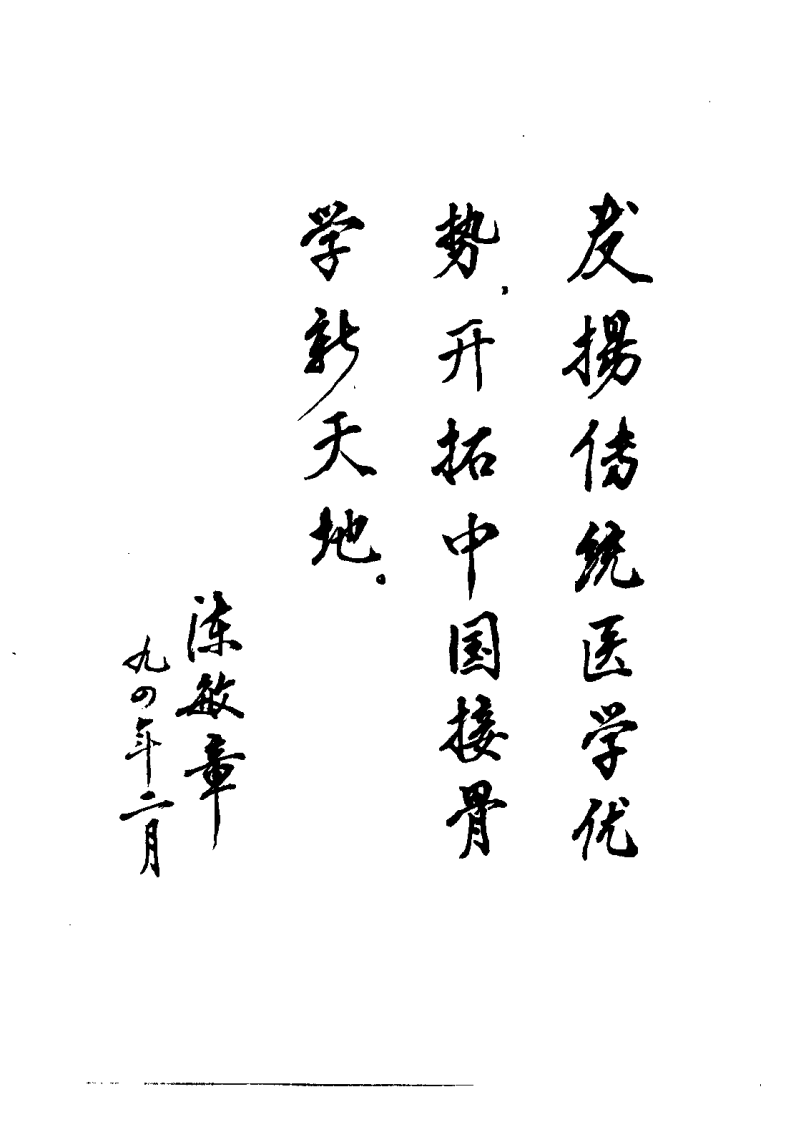 发揚传统医学优
势，开拓中国接骨
学新天地。
陈敏章
九四年二月